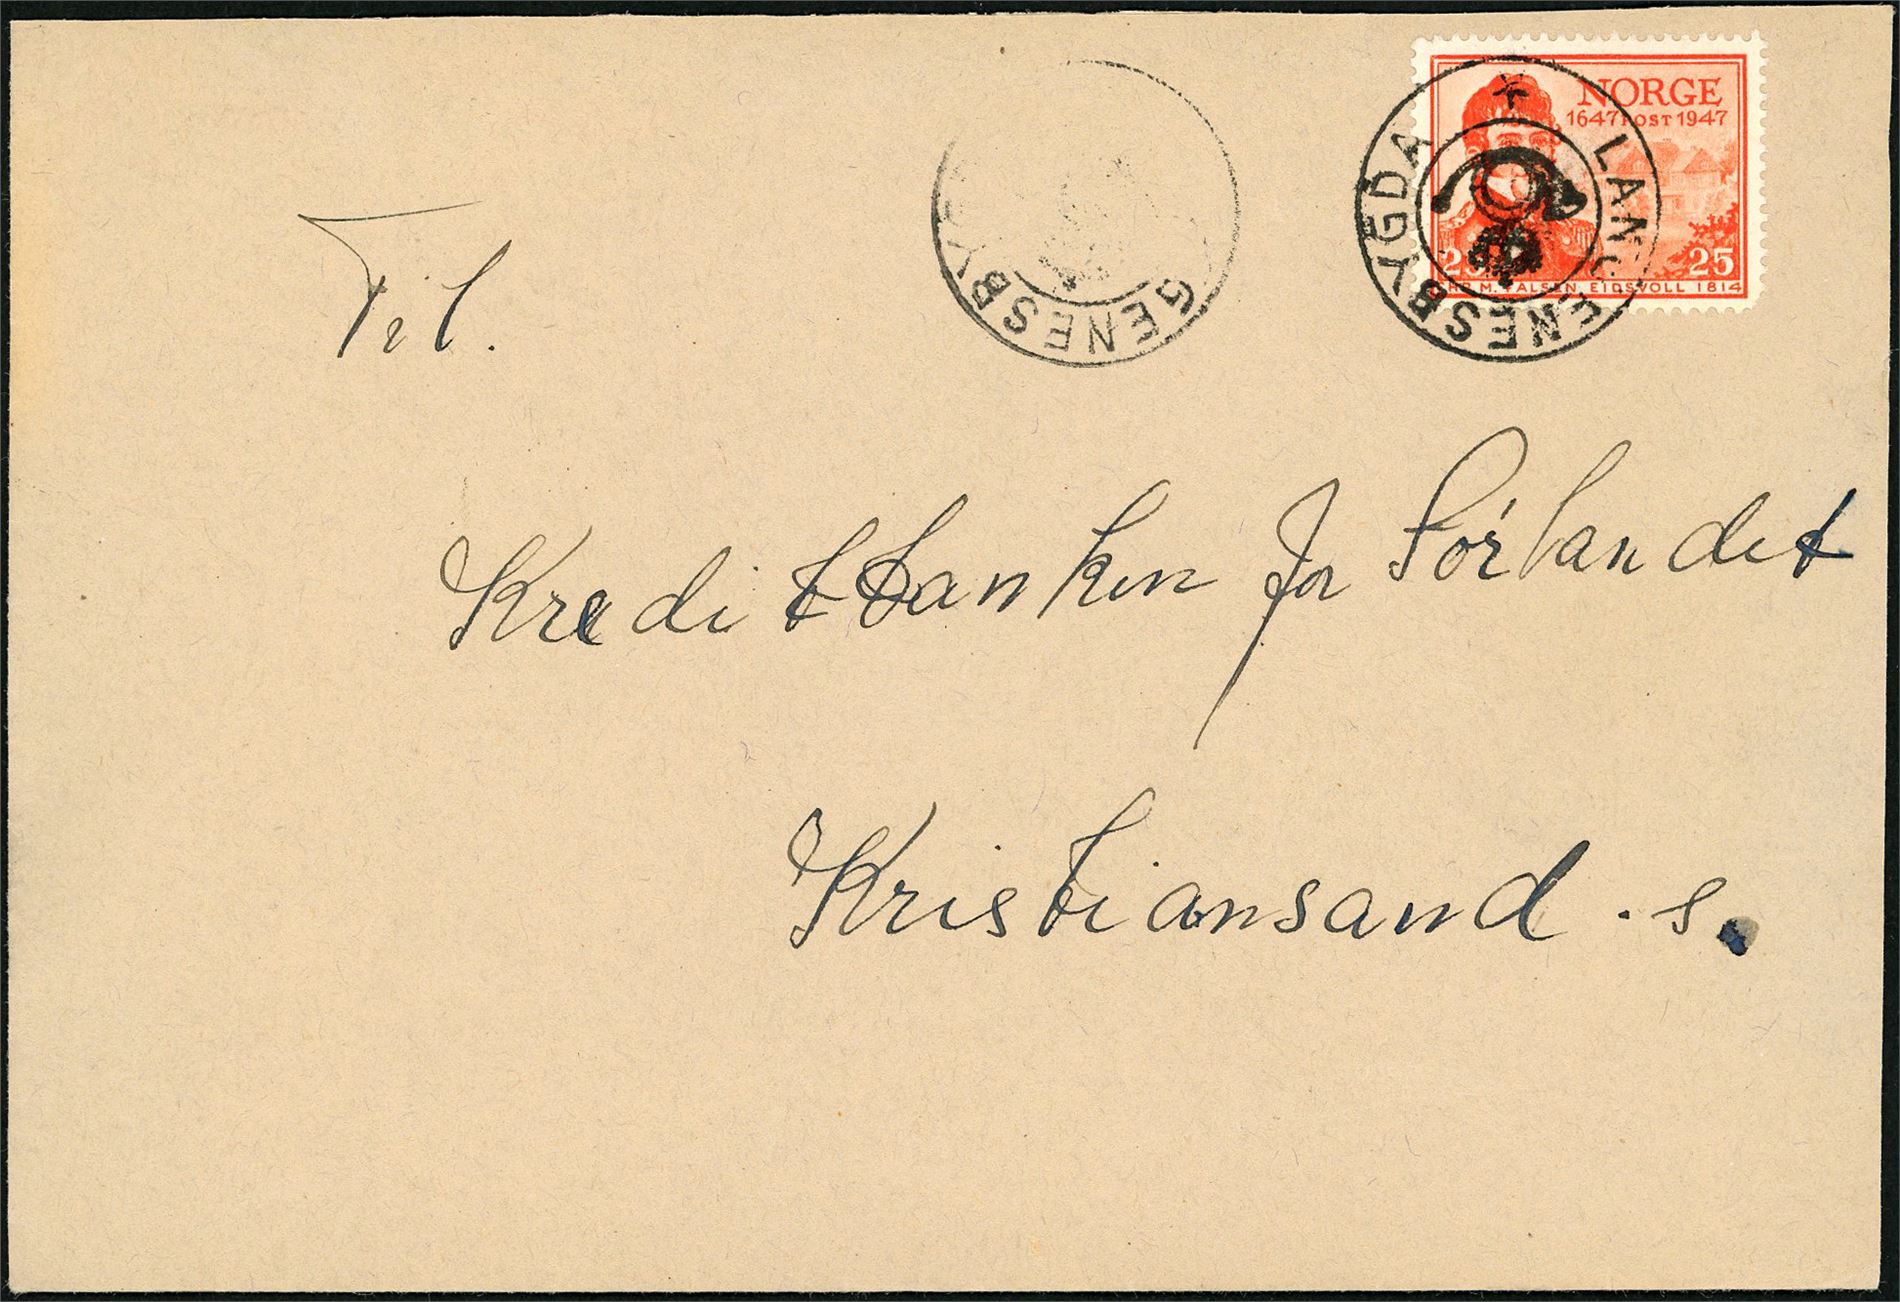 NORGE
1647 POST 1947
25 25
CHR. M. FALSEN, EIDSVOLL 1814
LANGENESBYGDA
GENESBYG
Til.
Kreditbanken for Sørlandet
Kristiansand . s.